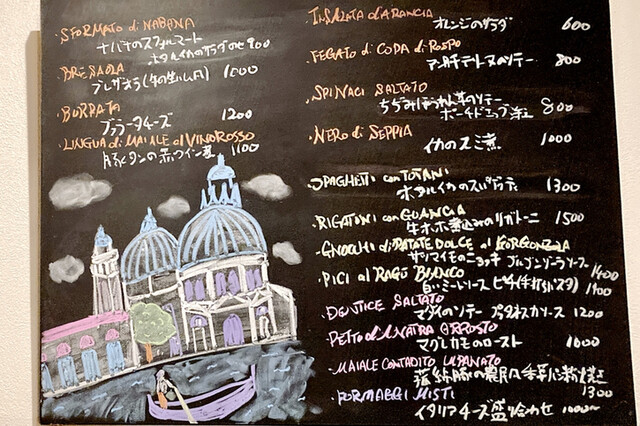 SFORMATO di NABANA
ナバナのスフォルマート
ホタルイカのサラダのせ 900
BRESAOLA
ブレザオラ(牛の生ハム) 1000
BURRATA
ブッラータチーズ 1200
LINGUA di MAIALE al VINO ROSSO
豚タンの赤ワイン煮 1100
INSALATA d'ARANCIA
オレンジのサラダ 600
FEGATO di CODA di ROSPO
800
SPINACI SALTATO
ちぢみほうれん草のソテー
ポーチドエッグ 800
NERO di SEPPIA
イカのスミ煮 1000
SPAGHETTI con TOTANI
ホタルイカのスパゲッティ 1300
RIGATONI con GUANCIA
牛ホホ煮込みのリガトーニ 1500
GNOCCHI di PATATE DOLCE al GORGONZOLA
サツマイモのニョッキ ゴルゴンゾーラソース 1400
PICI al RAGÙ BIANCO
白いミートソース ピチ(手打パスタ) 1400
DENTICE SALTATO
マダイのソテー プッタネスカソース 1200
PETTO d'ANATRA ARROSTO
マグレカモのロースト 1600
MAIALE
1300
FORMAGGI MISTI
イタリアチーズ盛り合わせ 1000〜